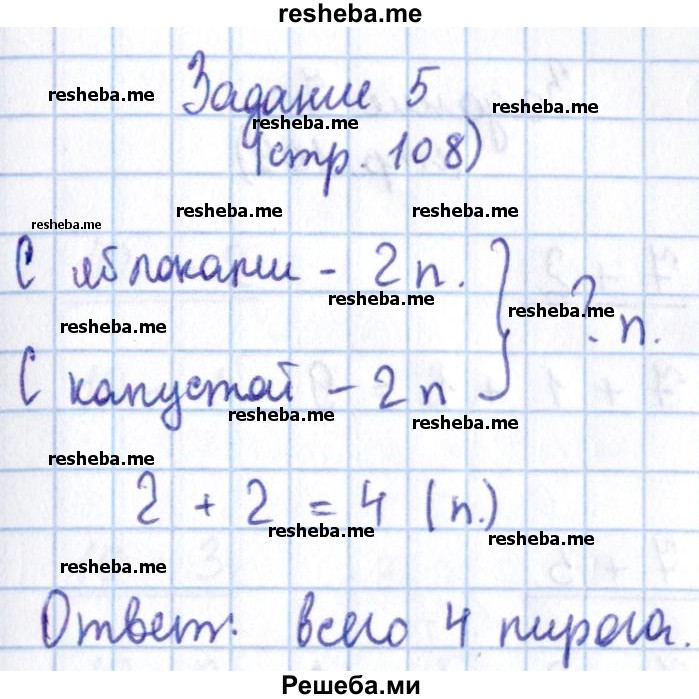 resheba.me
Задание 5
resheba.me resheba.me
resheba.me
(стр. 108)
resheba.me resheba.me
resheba.me
С яблоками - 2 п. } ? п.
resheba.me resheba.me
resheba.me
С капустой - 2 п
resheba.me resheba.me
resheba.me
2 + 2 = 4 (п.)
resheba.me resheba.me
resheba.me
Ответ: всего 4 пирога.
Решеба.ми